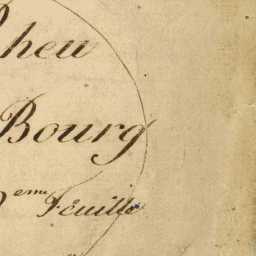 Rheu
Bourg
2eme Feuille